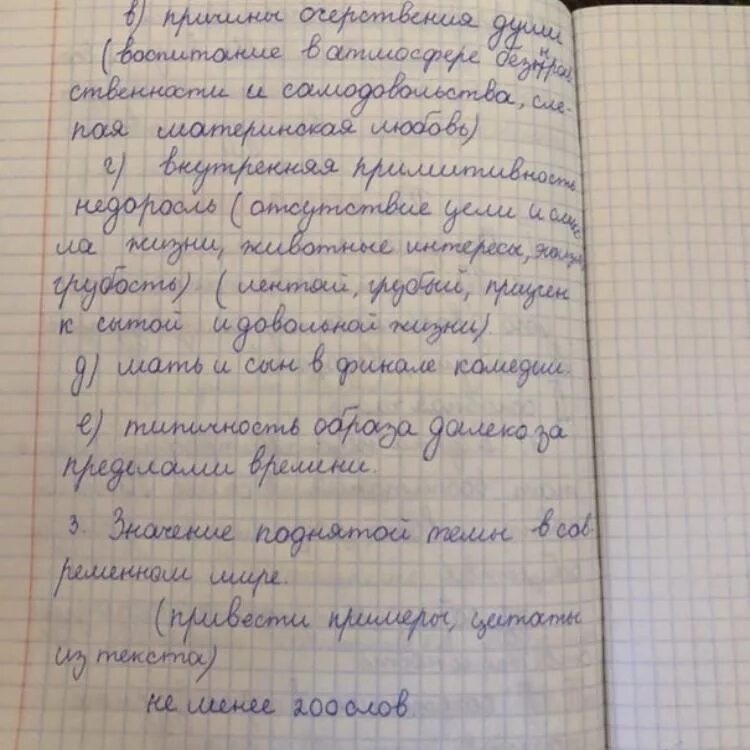 в) причины очерствения души
(воспитание в атмосфере безнрав
ственности и самодовольства, сле-
пая материнская любовь)
г) внутренняя примитивность
недоросль (отсутствие цели и смыс
ла жизни, животные интересы,
грубость) (лентяй, грубый, приучен
к сытой и довольной жизни).
д) мать и сын в финале комедии.
е) типичность образа далеко за
пределами времени.
3. Значение поднятой темы в сов
ременном мире.
(привести примеры, цитаты
из текста)
не менее 200 слов.